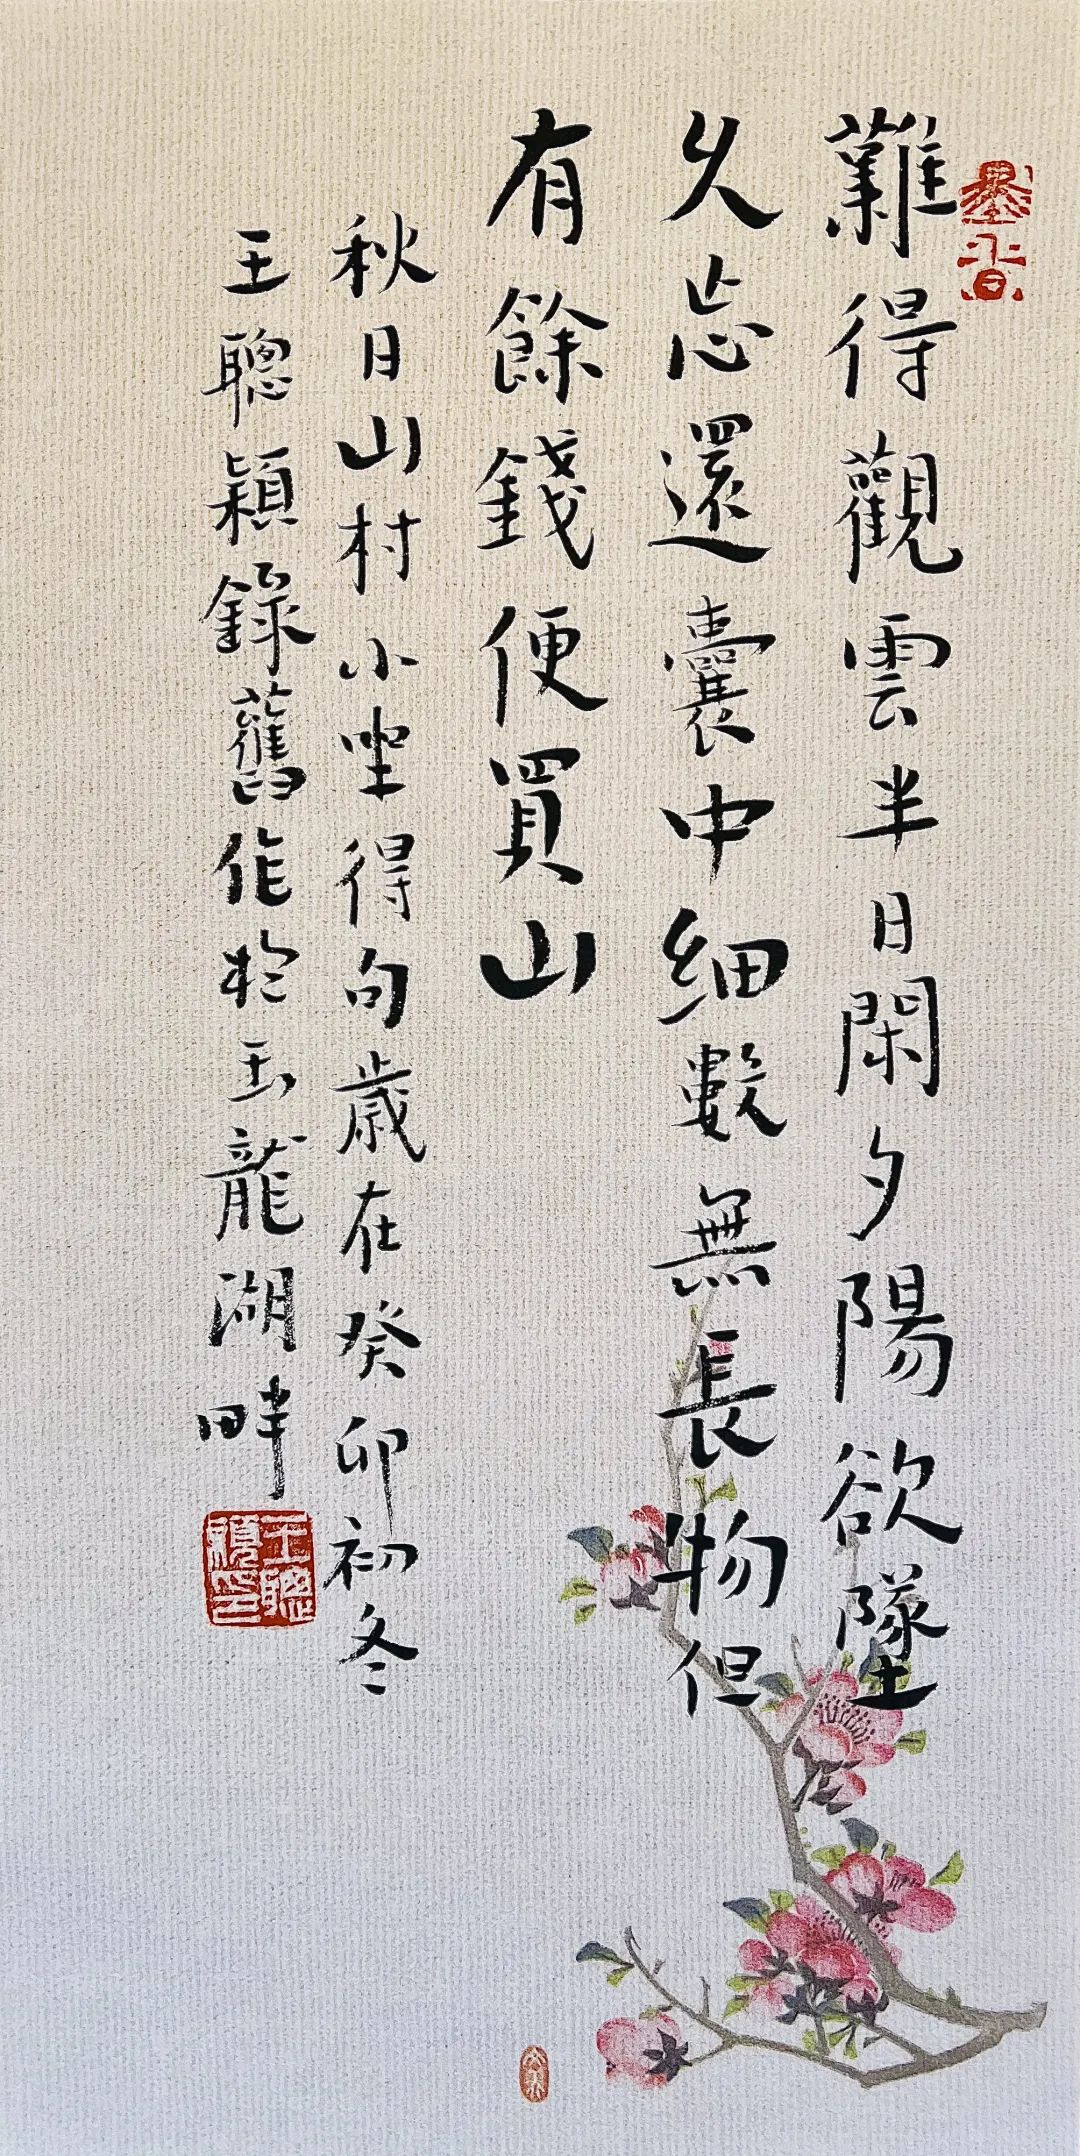 難得觀雲半日閑夕陽欲墜
久忘還囊中細數無長物但
有餘錢便買山
秋日山村小坐得句歲在癸卯初冬
王聰穎錄舊作於玉龍湖畔
墨香
王聰穎印